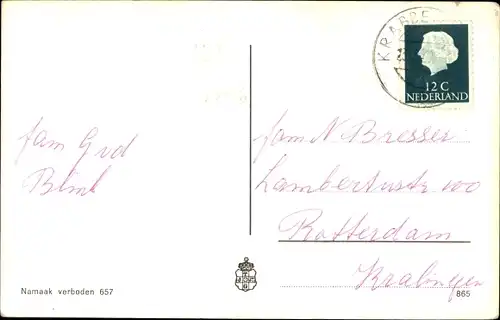 KRABBE
12 C
NEDERLAND
fam G vd
fam N Bresser
Lambertustr 100
Rotterdam
Kralingen
Namaak verboden 657
865